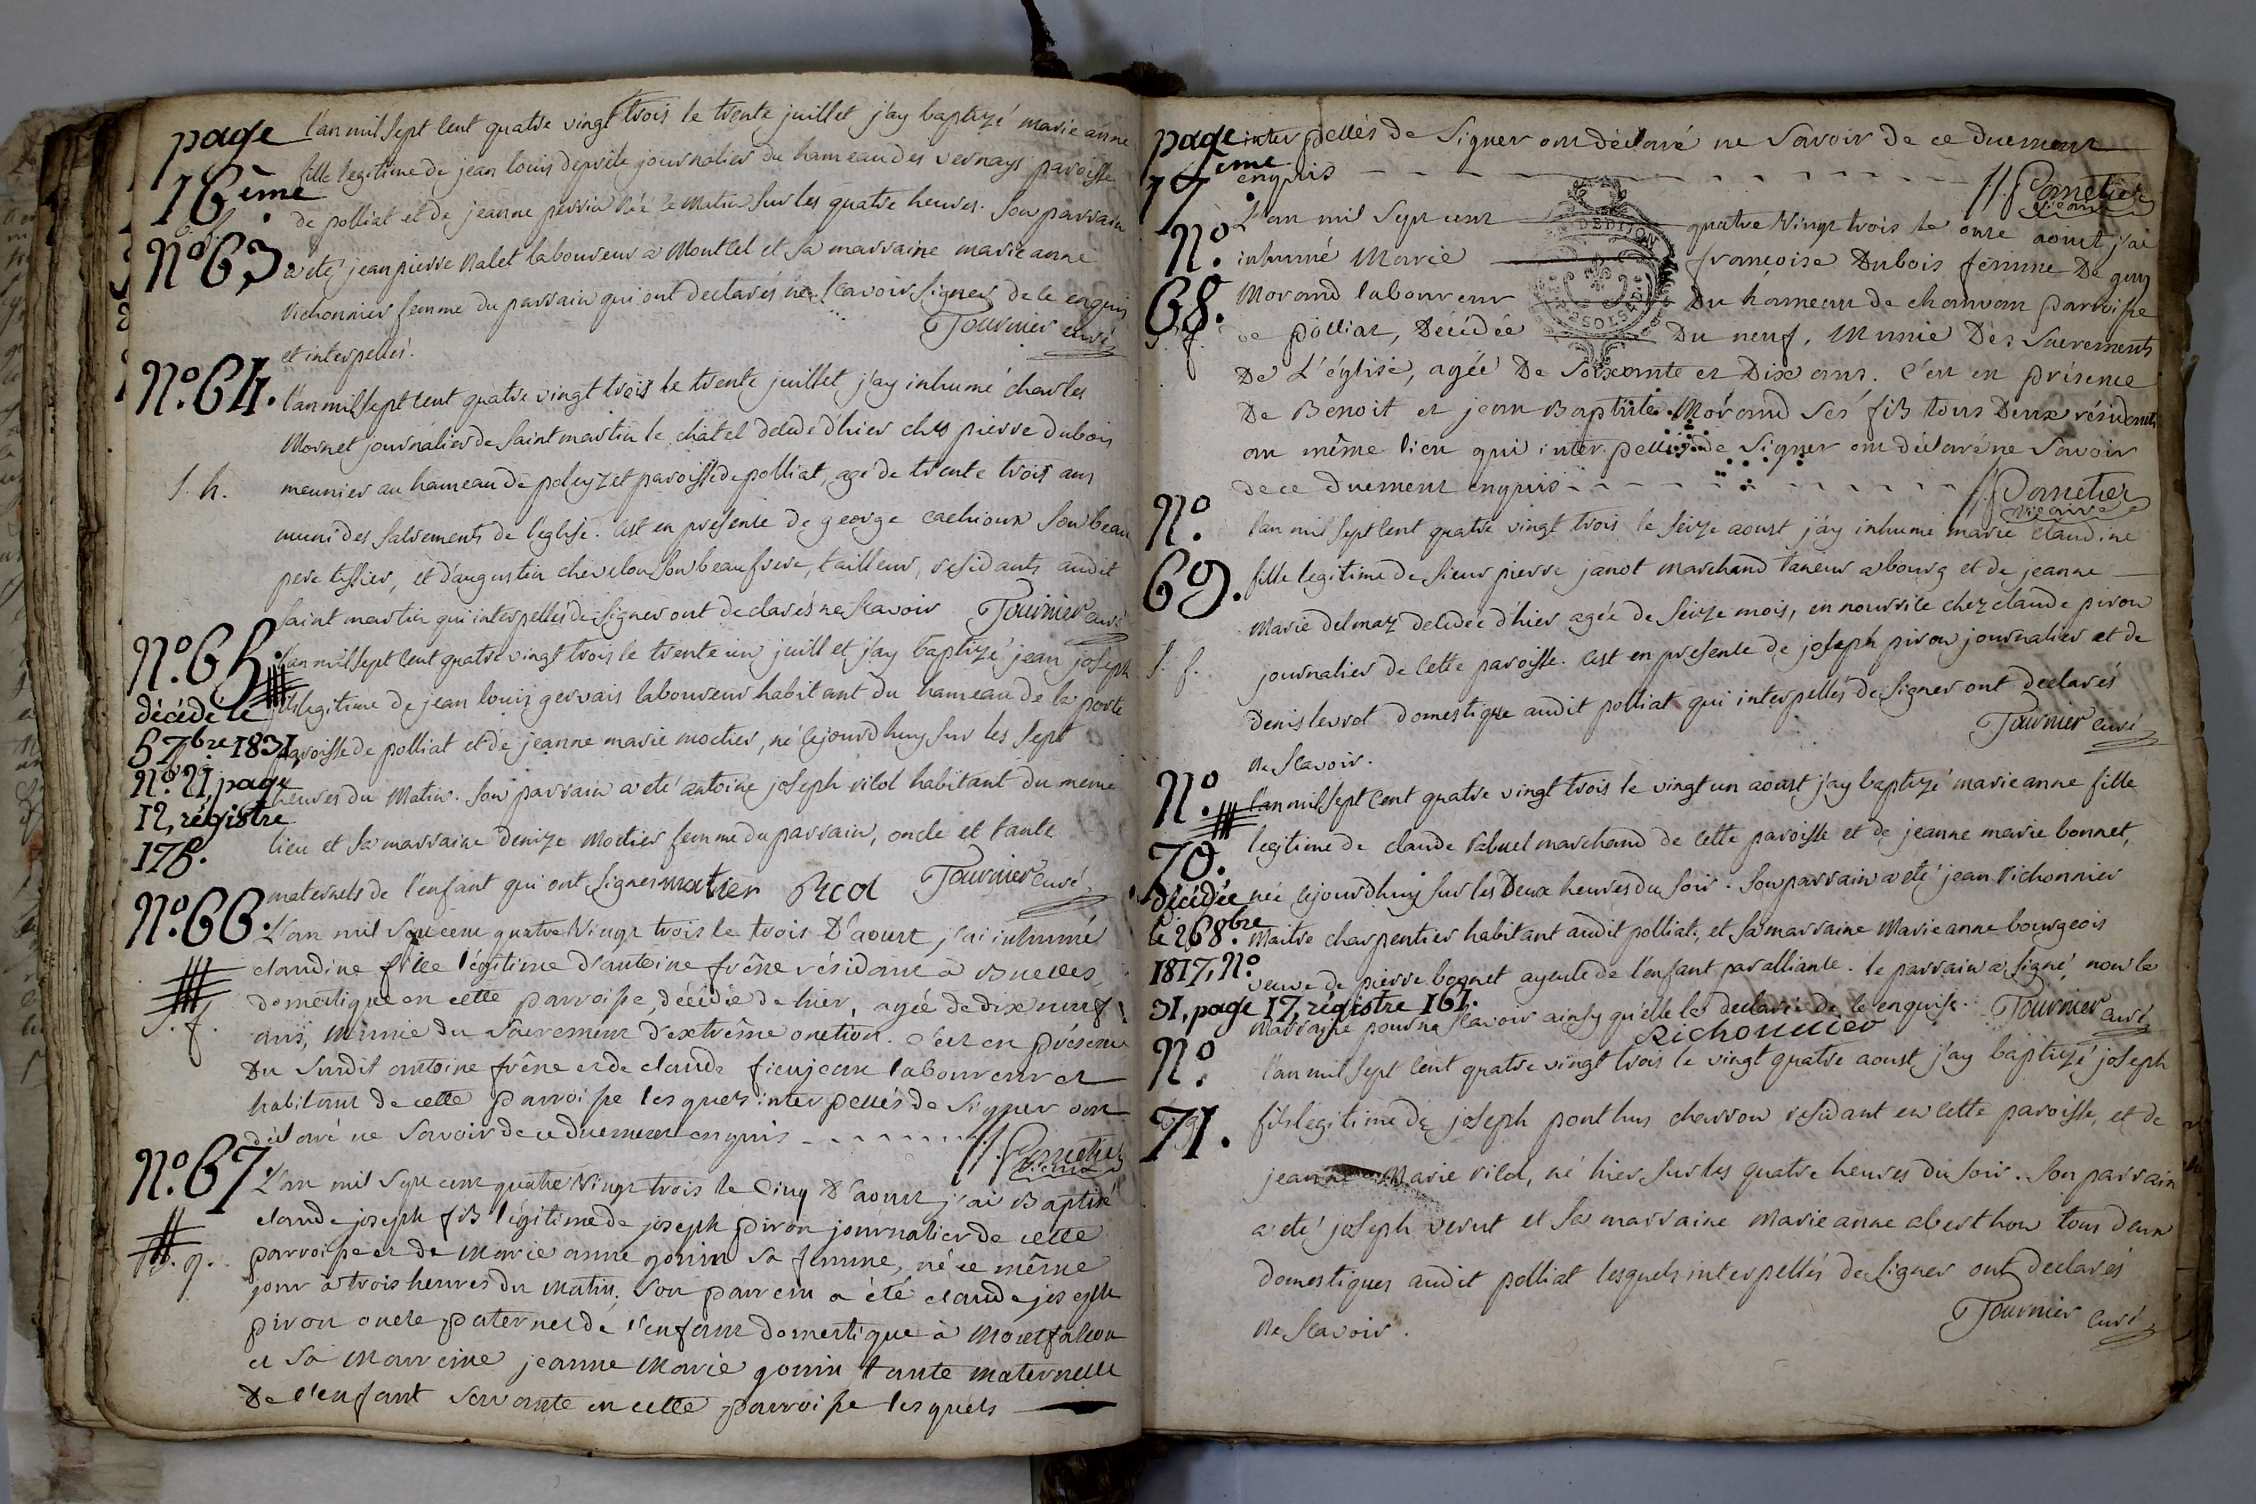 page
16ème
l'an mil sept cent quatre vingt trois le trente juillet j'ay baptizé marie anne
fille legitime de jean louis journalier du hameau des vernays paroisse
de polliat et de jeanne perrin née le matin sur les quatre heures. son parrain
N.º 63.
a eté jean pierre Nalet laboureur a Montcel et sa marraine marie anne
vichonnier femme du parrain qui ont declarés ne scavoir signer de ce enquis
et interpellés.
Tournier curé
N.º 64.
l'an mil sept cent quatre vingt trois le trente juillet j'ay inhumé charles
Mornet journalier de saint martin le chatel decedé d'hier chés pierre dubois
S. h.
meunier au hameau de paroisse de polliat, agé de trente trois ans
muni des sacrements de l'eglise. c'est en presence de george cachioux son beau
pere tissier, et d'augustin chevelon son beaufrere, tailleur, residants audit
saint martin qui interpellés de signer ont declarés ne scavoir Tournier curé
N.º 65.
l'an mil sept cent quatre vingt trois le trente un juillet j'ay baptizé jean joseph
fils legitime de jean louis gervais laboureur habitant du hameau de la poste
décédé le
5 7bre 1831,
N.º 21, page
12, régistre
178.
paroisse de polliat et de jeanne marie motier, né cejourdhuy sur les sept
heures du matin. son parrain a eté antoine joseph ricol habitant du meme
lieu et sa marraine denize Motier femme du parrain, oncle et tante
maternels de l'enfant qui ont signer motier Ricol Tournier curé
N.º 66.
L'an mil sept cent quatre Vingt trois le trois D'aoust j'ai inhumé
claudine fille légitime d'antoine frêne résidant à Buelles
S. f.
domestique en cette parroisse, décédée de hier, agée de dix neuf
ans, Munie du sacrement d'extrême onction. c'est en présence
Du susdit antoine frêne et de claude fieujean laboureur et
habitant de cette parroisse lesquels interpellés de signer ont
déclaré ne savoir de ce duement enquis
vicaire
N.º 67.
L'an mil sept cent quatre Vingt trois le Cinq D'aoust j'ai Baptisé
claude joseph fils légitime de joseph piron journalier de cette
parroisse et de Marie anne gonin sa femme, né ce même
jour à trois heures du Matin. son parrein a été claude joseph
piron oncle paternel de l'enfant domestique à Montfalcon
et sa Marreine jeanne Marie gonin tante maternelle
De l'enfant servante en cette parroisse lesquels
page
17ème
interpellés de signer ont déclaré ne savoir de ce duement
enquis
vicaire
N.º
68.
L'an mil sept cent quatre Vingt trois le onze aoust j'ai
inhumé Marie françoise Dubois femme De guy
Morand laboureur Du hameau de chanvan parroisse
de polliat, Décédée Du neuf, Munie Des sacrements
De L'église, agée De soixante et Dix ans. C'est en présence
De Benoit et jean Baptiste Morand ses fils tous Deux résidents
au même lieu qui interpellés de signer ont déclaré ne savoir
de ce duement enquis
vicaire
N.º
69.
l'an mil sept cent quatre vingt trois le seize aoust j'ay inhumé marie claudine
fille legitime de sieur pierre janot marchand taneur a bourg et de jeanne
Marie delmaz decedée d'hier agée de seize mois, en nourrice chez claude piron
S. f.
journalier de cette paroisse. c'est en presence de joseph piron journalier et de
denis levrot domestique audit polliat qui interpellés de signer ont declarés
ne scavoir.
Tournier curé
N.º
70.
l'an mil sept cent quatre vingt trois le vingt un aoust j'ay baptizé marie anne fille
legitime de claude marchand de cette paroisse et de jeanne marie bonnet,
décédée
le 26 8.bre
1817, N.º
31, page 17, régistre 161.
née cejourdhuy sur les Deux heures du soir. son parrain a eté jean Richonnier
Maitre charpentier habitant audit polliat, et sa marraine Marie anne bourgeois
veuve de pierre bonnet ayeule de l'enfant par alliance. le parrain a signé, non la
marraine pour ne scavoir ainsy qu'elle la declaré de ce enquise. Tournier curé
Richonnier
N.º
71.
l'an mil sept cent quatre vingt trois le vingt quatre aoust j'ay baptizé joseph
fils legitime de joseph ponthus charron residant en cette paroisse, et de
jeanne Marie ricol, né hier sur les quatre heures du soir. son parrain
a eté joseph verut et sa marraine Marie anne aberthon tous deux
domestiques audit polliat lesquels interpellés de signer ont declarés
ne scavoir.
Tournier curé